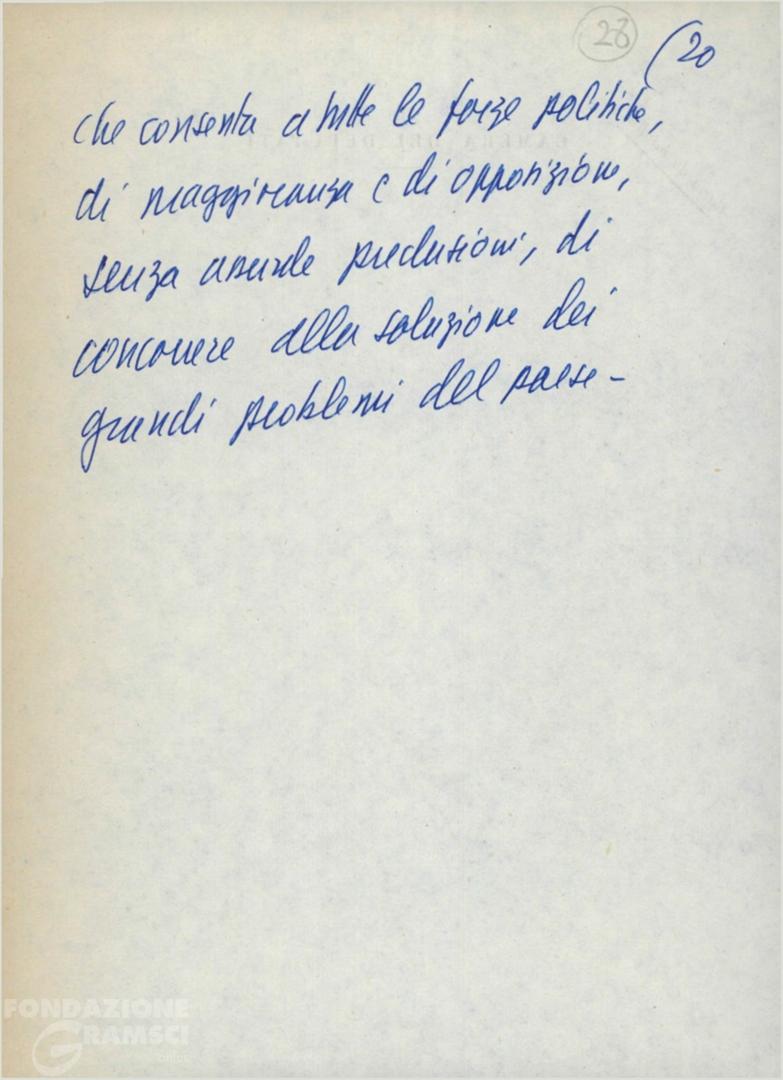 28
(20
che consenta a tutte le forze politiche,
di maggioranza e di opposizione,
senza assurde preclusioni, di
concorrere alla soluzione dei
grandi problemi del paese -
FONDAZIONE
GRAMSCI